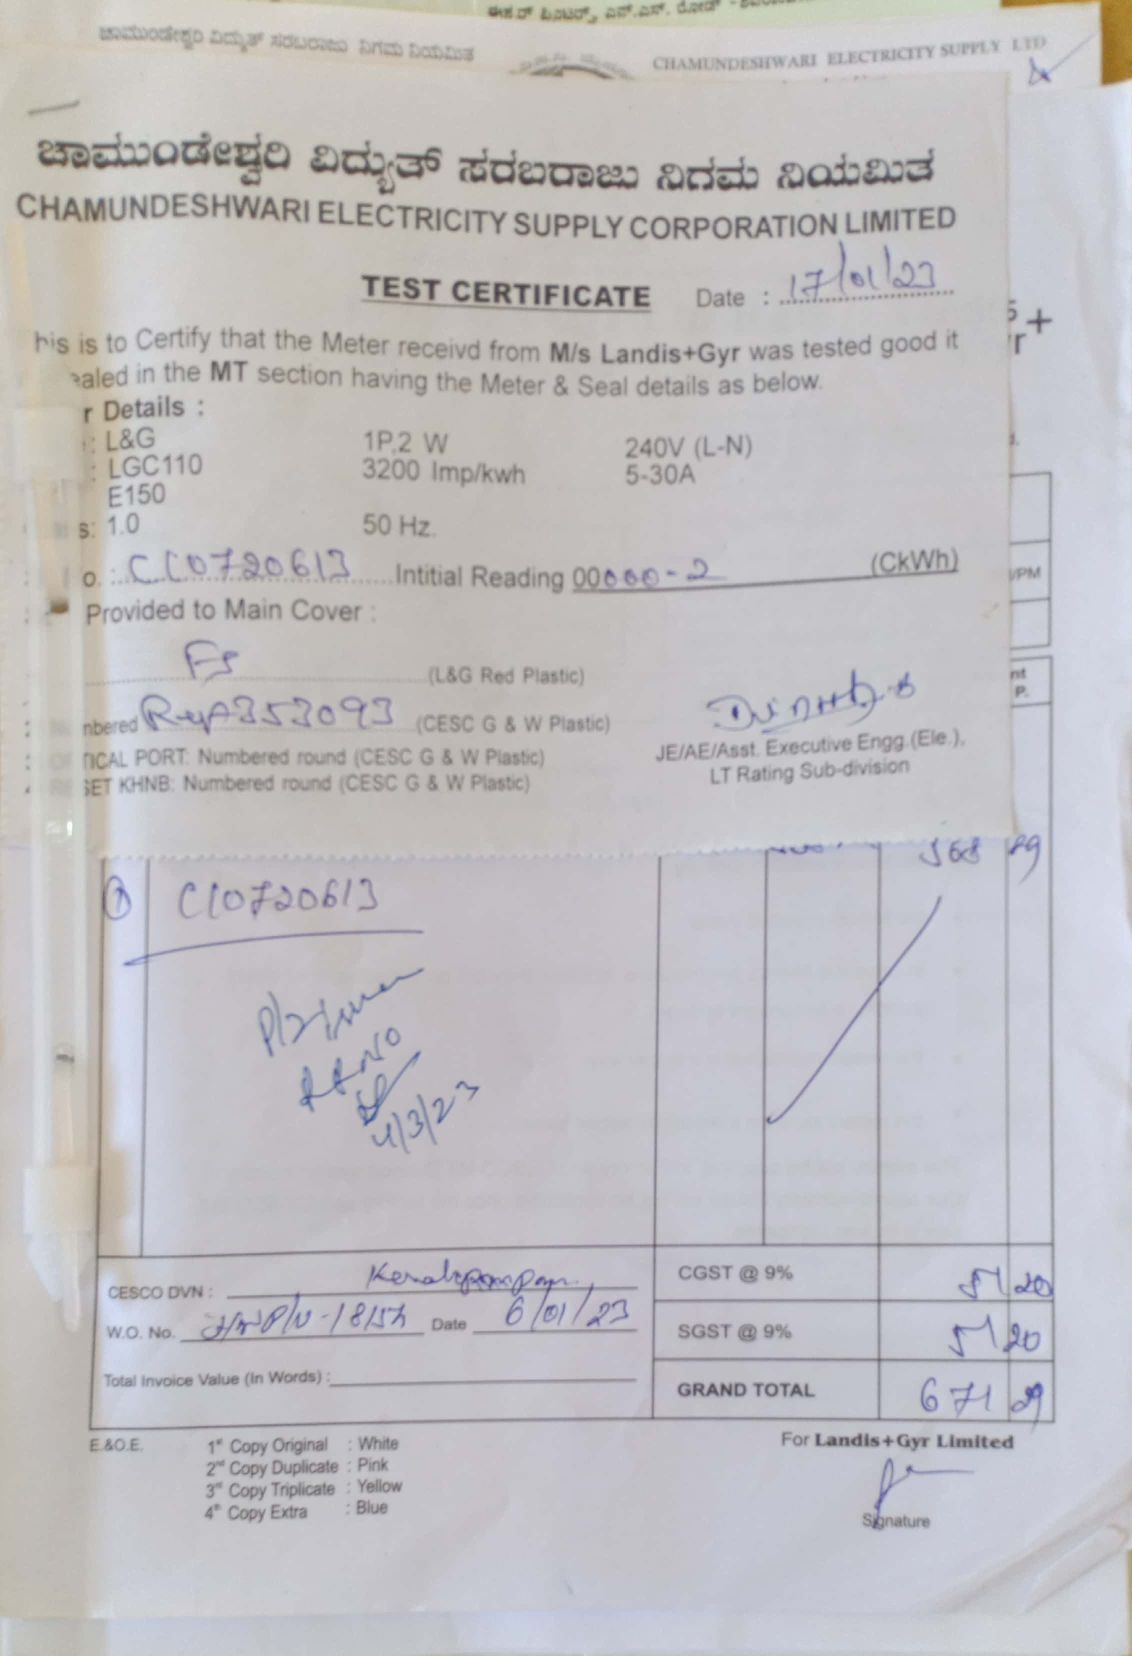 ಚಾಮುಂಡೇಶ್ವರಿ ವಿದ್ಯುತ್ ಸರಬರಾಜು ನಿಗಮ ನಿಯಮಿತ
CHAMUNDESHWARI ELECTRICITY SUPPLY LTD
ಚಾಮುಂಡೇಶ್ವರಿ ವಿದ್ಯುತ್ ಸರಬರಾಜು ನಿಗಮ ನಿಯಮಿತ
CHAMUNDESHWARI ELECTRICITY SUPPLY CORPORATION LIMITED
TEST CERTIFICATE Date : 17/01/23
his is to Certify that the Meter receivd from M/s Landis+Gyr was tested good it
ealed in the MT section having the Meter & Seal details as below.
r Details :
: L&G 1P.2 W 240V (L-N)
: LGC110 3200 Imp/kwh 5-30A
E150
s: 1.0 50 Hz.
o. : C10720613 Intitial Reading 00000-2 (CkWh)
Provided to Main Cover :
(L&G Red Plastic)
nbered 353093 (CESC G & W Plastic)
TICAL PORT: Numbered round (CESC G & W Plastic)
SET KHNB: Numbered round (CESC G & W Plastic)
JE/AE/Asst. Executive Engg.(Ele.),
LT Rating Sub-division
568 89
1 C10720613
RRNO
4/3/23
CESCO DVN :
W.O. No. Date 6/01/23
Total Invoice Value (In Words) :
CGST @ 9% 51 20
SGST @ 9% 51 20
GRAND TOTAL 671 29
E.&O.E.
1st Copy Original : White
2nd Copy Duplicate : Pink
3rd Copy Triplicate : Yellow
4th Copy Extra : Blue
For Landis+Gyr Limited
Signature